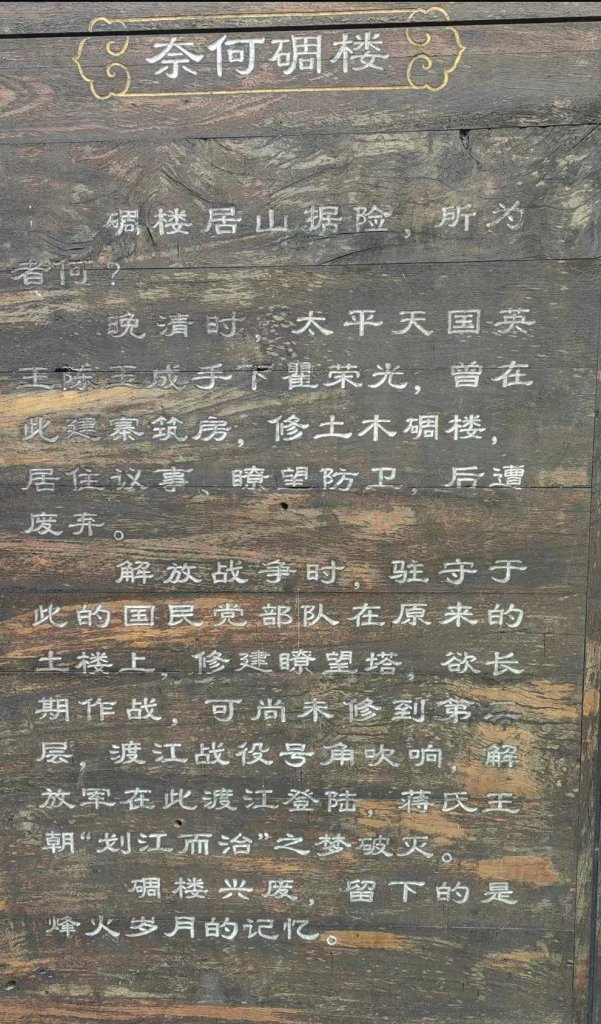 奈何碉楼
碉楼居山据险，所为
者何？
晚清时，太平天国英
王陈玉成手下瞿荣光，曾在
此建寨筑房，修土木碉楼，
居住议事、瞭望防卫，后遭
废弃。
解放战争时，驻守于
此的国民党部队在原来的
土楼上，修建瞭望塔，欲长
期作战，可尚未修到第
层，渡江战役号角吹响，解
放军在此渡江登陆，蒋氏王
朝“划江而治”之梦破灭。
碉楼兴废，留下的是
烽火岁月的记忆。